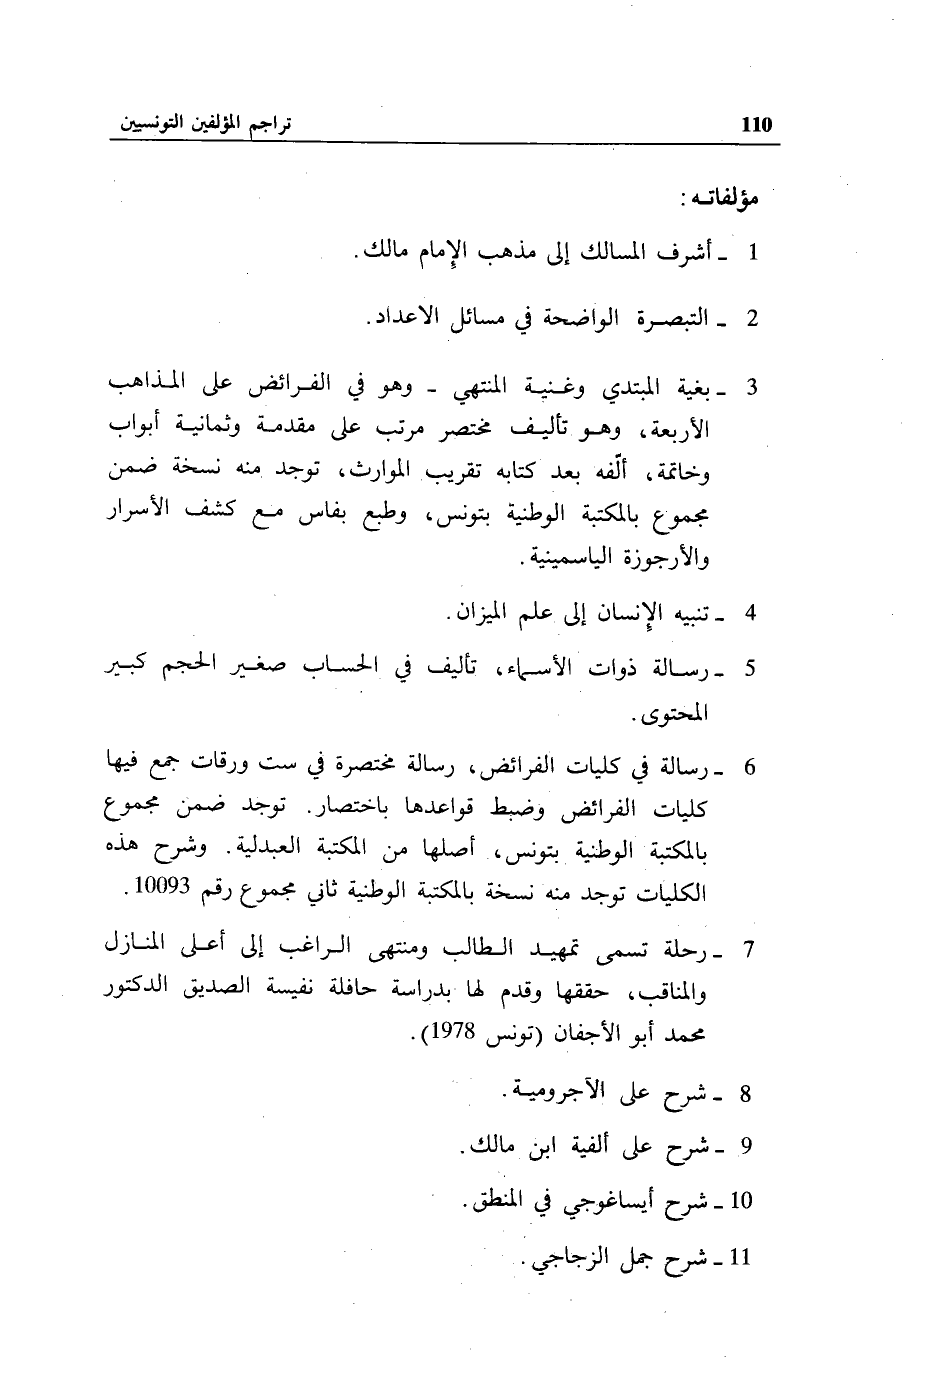 110 تراجم المؤلفين التونسيين
مؤلفاته :
1 ـ أشرف المسالك إلى مذهب الإمام مالك.
2 ـ التبصرة الواضحة في مسائل الاعداد.
3 ـ بغية المبتدي وغنية المنتهي ـ وهو في الفرائض على المذاهب
الأربعة، وهو تأليف مختصر مرتب على مقدمة وثمانية أبواب
وخاتمة، ألّفه بعد كتابه تقريب الموارث، توجد منه نسخة ضمن
مجموع بالمكتبة الوطنية بتونس، وطبع بفاس مع كشف الأسرار
والأرجوزة الياسمينية.
4 ـ تنبيه الإنسان إلى علم الميزان.
5 ـ رسالة ذوات الأسماء، تأليف في الحساب صغير الحجم كبير
المحتوى.
6 ـ رسالة في كليات الفرائض، رسالة مختصرة في ست ورقات جمع فيها
كليات الفرائض وضبط قواعدها باختصار. توجد ضمن مجموع
بالمكتبة الوطنية بتونس، أصلها من المكتبة العبدلية. وشرح هذه
الكليات توجد منه نسخة بالمكتبة الوطنية ثاني مجموع رقم 10093.
7 ـ رحلة تسمى تمهيد الطالب ومنتهى الراغب إلى أعلى المنازل
والمناقب، حققها وقدم لها بدراسة حافلة نفيسة الصديق الدكتور
محمد أبو الأجفان (تونس 1978).
8 ـ شرح على الآجرومية.
9 ـ شرح على ألفية ابن مالك.
10 ـ شرح أيساغوجي في المنطق.
11 ـ شرح جمل الزجاجي.